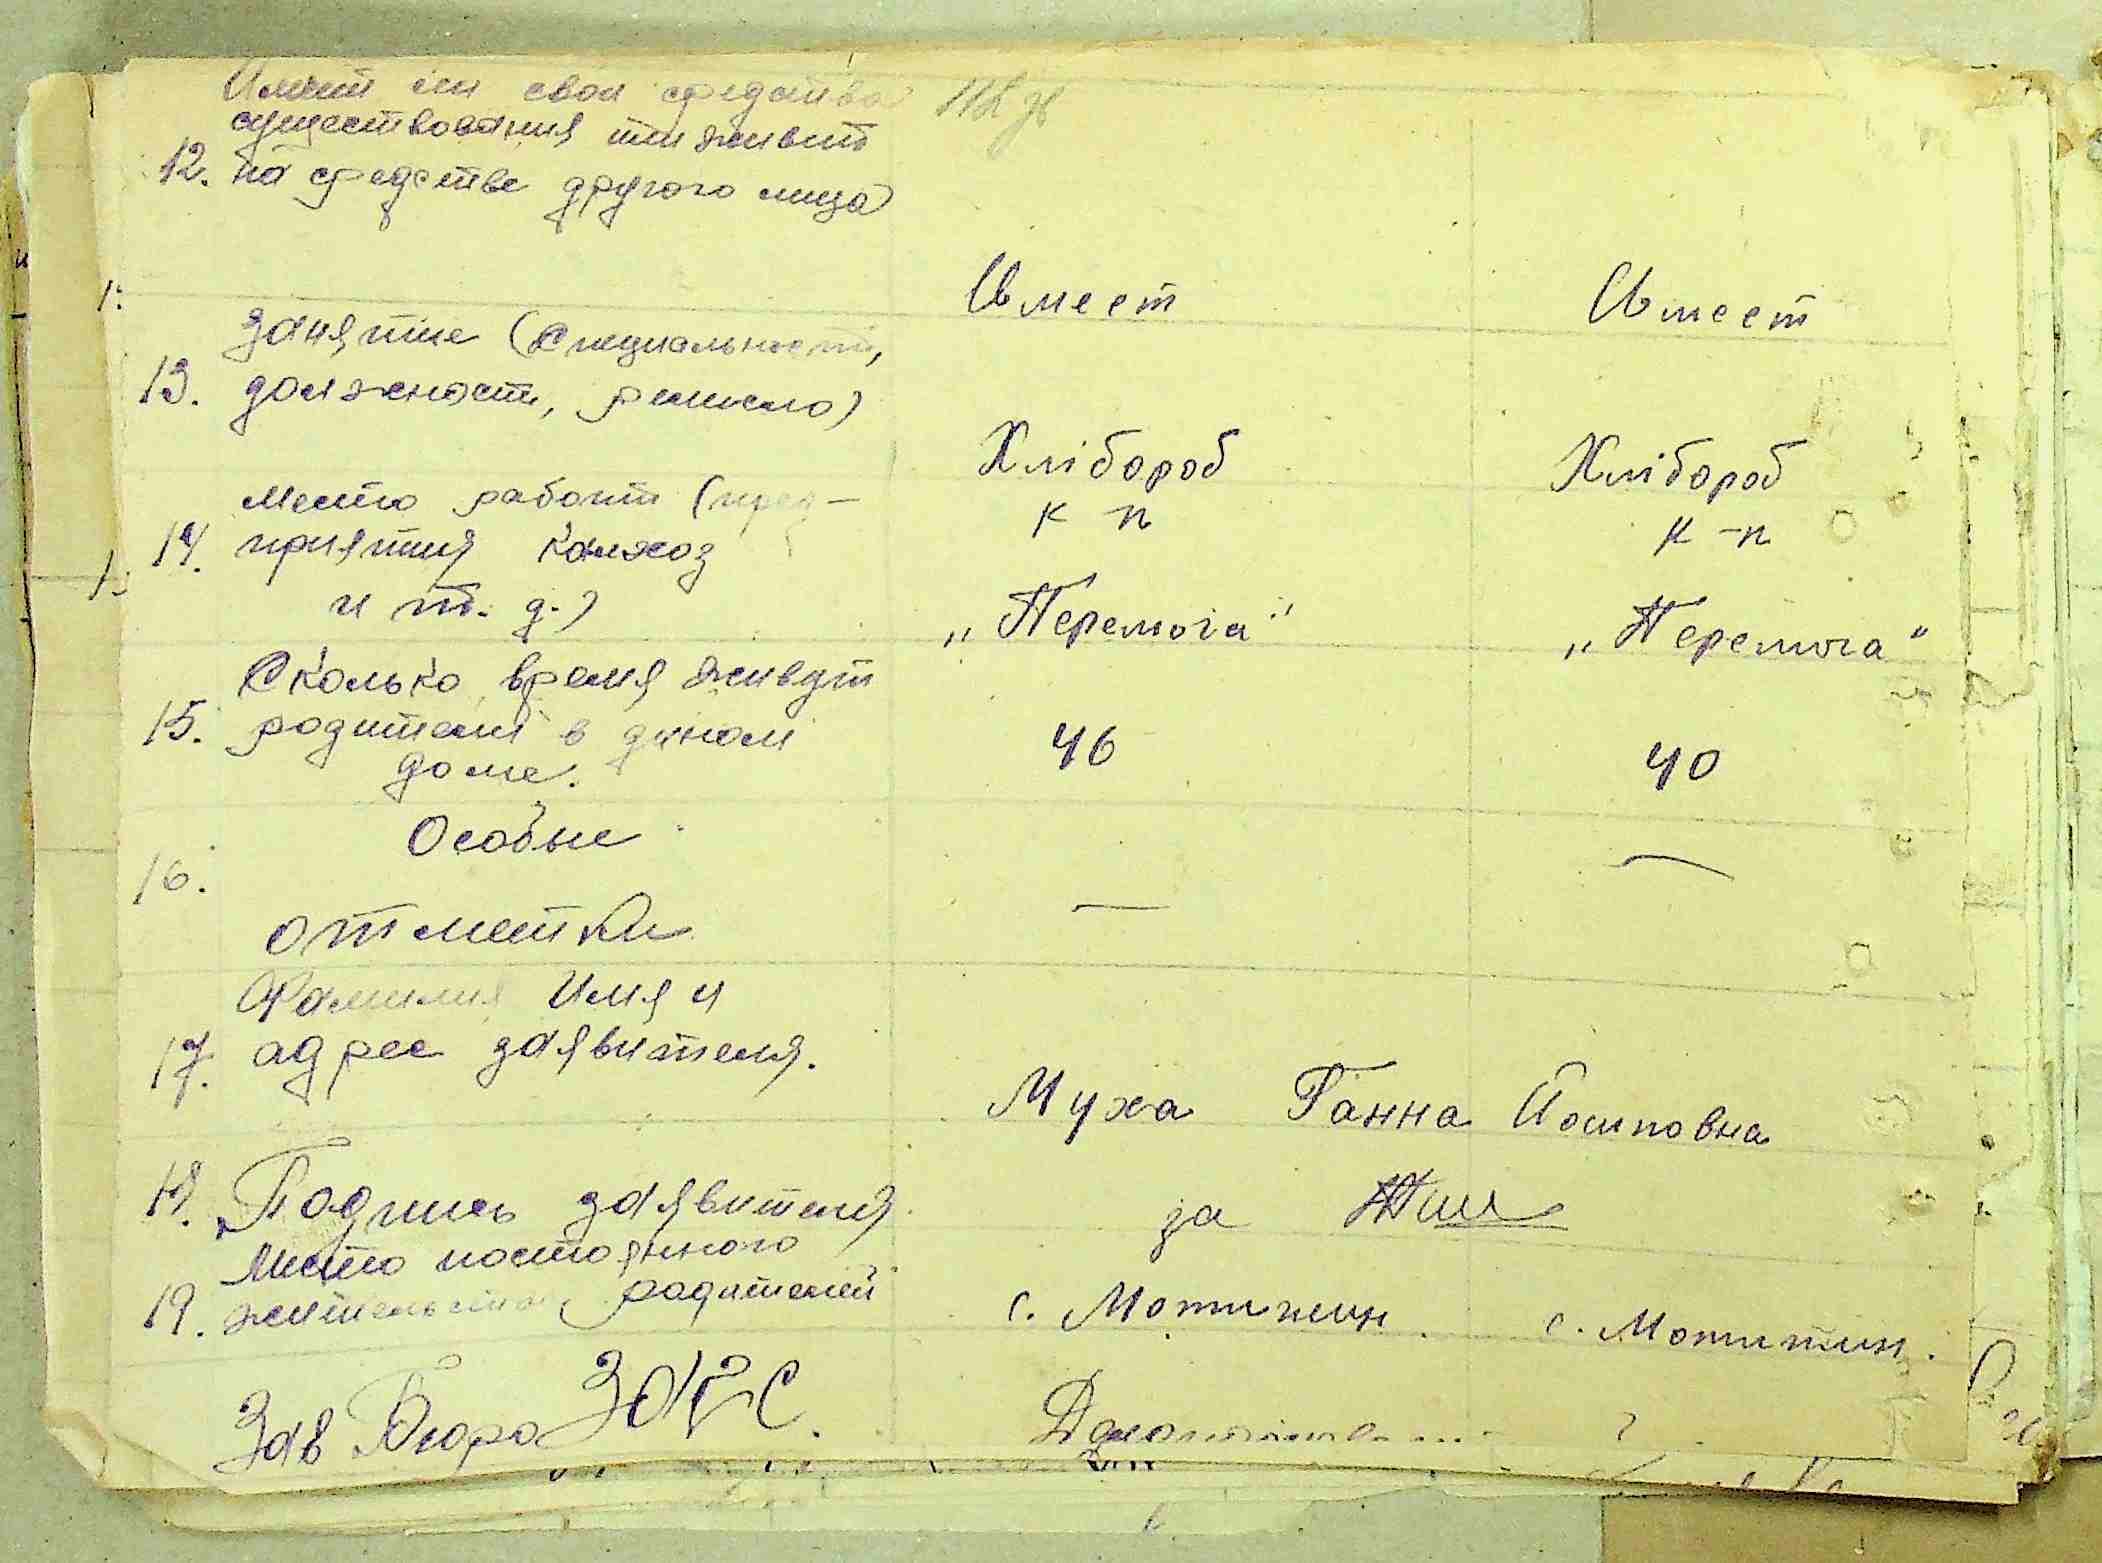 Имеет ли свои средства
существования или живет
12. на средстве другого лица
Имеет Имеет
Занятие (Специальность,
13. должность, ремесло)
Хлібороб Хлібороб
Место работи (пред-
к-п к-п
14. приятия колхоз
и т. д.)
„Перемога" „Перемога"
Сколько время живут
15. родители в даном
доме.
46 40
Особые
16. — —
отметки
Фамилия Имя и
17. адрес заявителя.
Муха Ганна Йосиповна
18. Подпись заявителя
за
Место постоянного
19. жительства родителей
с. Мотижин с. Мотижин.
Зав Бюро ЗАГС.